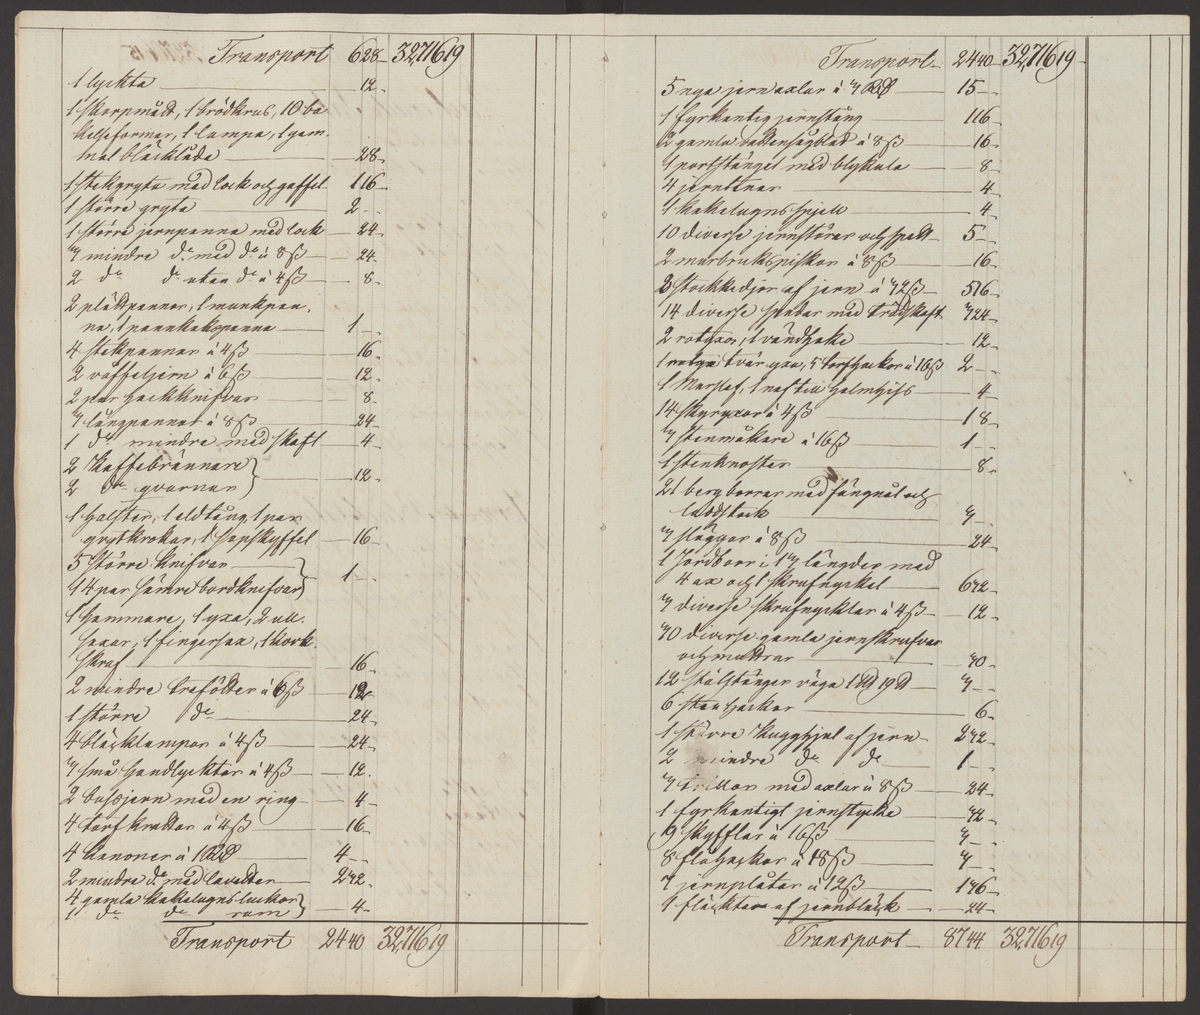 Transport 6 28 - 32,716 19
1 lyckta - 12 -
1 skorpmått, 1 brödkrus, 10 ba
kelseformar, 1 lampa, 1 gam-
mal bläcklåda - 28 -
1 stekgryta med lock och gaffel 1 16 -
1 större gryta 2 - -
1 större jernpanna med lock - 24 -
3 mindre do med do à 8 ß - 24 -
2 do do utan do à 4 ß - 8 -
2 plättpannor, 1 munkpan-
na, 1 pannkakspanna 1 - -
4 stekpannor à 4 ß - 16 -
2 våffeljern à 6 ß - 12 -
2 par hackknifvar - 8 -
3 långpannor à 8 ß - 24 -
1 do mindre med skaft - 4 -
2 kaffebrännare
2 do qvarnar - 12 -
1 halster, 1 eldtång, 1 par
grytkrokar, 1 sopskyffel - 16 -
5 större knifvar
14 par sämre bordknifvar 1 - -
1 hammare, 1 yxa, 2 ull-
saxar, 1 fingersax, 1 kork-
skruf - 16 -
2 mindre trefötter à 6 ß - 12 -
1 större do - 24 -
4 bläcklampor à 4 ß - 24 -
3 små handlycktor à 4 ß - 12 -
2 med en ring - 4 -
4 torfkrattor à 4 ß - 16 -
4 kanoner à 1 Rd 4 - -
2 mindre do med lavetter 2 32 -
4 gamla kakelugnsluckor
1 do do ram - 4 -
Transport 24 40 32,716 19
Transport 24 40 - 32,716 19 -
5 nya jernaxlar à 3 Rd 15 - -
1 fyrkantig jernstång 1 16 -
2 gamla vattensågblad à 8 ß - 16 -
1 portstängel med blykula - 8 -
4 jerntenar - 4 -
1 kakelugnsspjell - 4 -
10 diverse jernstörar och spett 5 - -
2 murbruksviskor à 8 ß - 16 -
3 stockkedjor af jern à 32 ß 5 16 -
14 diverse spadar med trädskaft 3 24 -
2 rotyxor, 1 vändhake - 12 -
1 tväryxa, 5 torfhackor à 16 ß 2 - -
1 4 -
14 skyrpor à 4 ß 1 8 -
3 stenmåkare à 16 ß 1 - -
1 - 8 -
21 bergborrar med fängnål och
laddstock 3 - -
3 släggor à 8 ß - 24 -
1 Jordborr i 13 längder med
4 ax och 1 skrufnyckel 6 32 -
3 diverse skrufnycklar à 4 ß - 12 -
30 diverse gamla jernskrufvar
och muttrar - 30 -
12 stålstänger väga 3 - -
6 stenhackor - 6 -
1 större kugghjul af jern 2 32 -
2 mindre do do 1 - -
3 trillor med axlar à 8 ß - 24 -
1 fyrkantigt jernstycke - 32 -
9 skyfflar à 16 ß 3 - -
8 flåhackor à 18 ß 3 - -
7 jernplåtar à 12 ß 1 36 -
1 fläcktare af jernbläck - 24 -
Transport 87 44 32,716 19